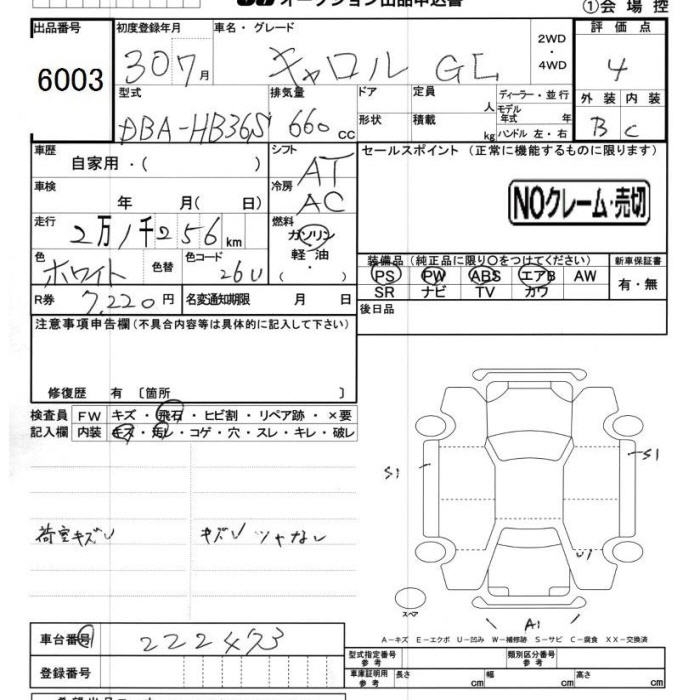 オークション出品申込書
①会場控
出品番号
6003
初度登録年月
30 7月
車名・グレード
キャロル GL
2WD
・
4WD
評価点
4
外装 内装
B C
型式
DBA-HB36S
排気量
660 cc
ドア
形状
定員
人
積載
kg
ディーラー・並行
モデル
年式 年
ハンドル 左・右
車歴
自家用・( )
シフト
AT
セールスポイント(正常に機能するものに限ります)
NOクレーム・売切
車検
年 月( 日)
冷房
AC
走行
2万1千256km
燃料
ガソリン
軽油
・
( )
色
ホワイト
色替
色コード
26U
装備品(純正品に限り〇をつけてください)
PS PW ABS エアB AW
SR ナビ TV カワ
新車保証書
有・無
R券
7,220円
名変通知期限 月 日
後日品
注意事項申告欄(不具合内容等は具体的に記入して下さい)
修復歴 有 〔箇所 〕
検査員
記入欄
FW キズ・飛石・ヒビ割・リペア跡・×要
内装 キズ・汚レ・コゲ・穴・スレ・キレ・破レ
荷室キズU キズU ツヤなし
S1
S1
U1
スペア
A1
A-キズ E-エクボ U-凹み W-補修跡 S-サビ C-腐食 XX-交換済
車台番号
222473
登録番号
型式指定番号
参考
類別区分番号
参考
車庫証明用
参考
長さ cm 幅 cm 高さ cm